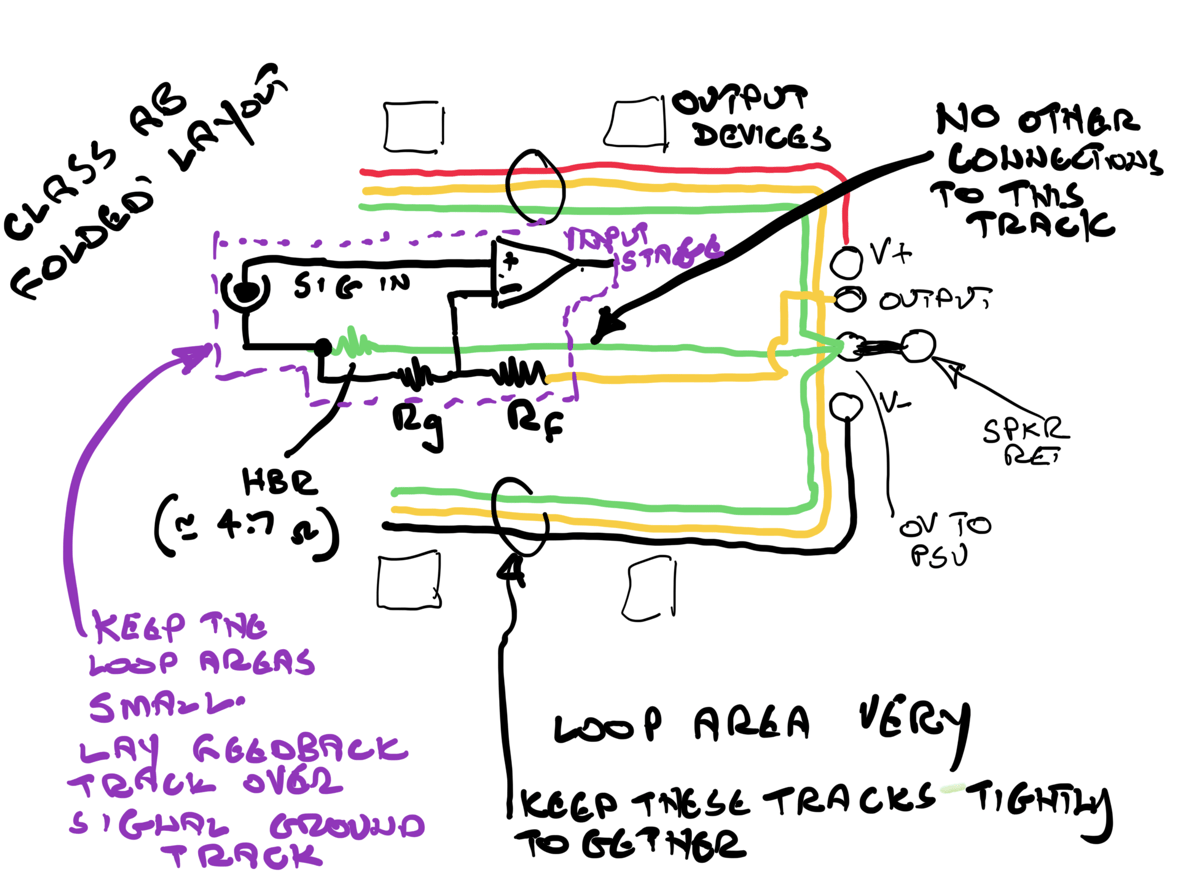 CLASS AB
FOLDED' LAYOUT
OUTPUT
DEVICES
NO OTHER
CONNECTIONS
TO THIS
TRACK
INPUT
STAGE
+
-
SIG IN
V+
OUTPUT
V-
SPKR
RET
0V TO
PSU
Rg
Rf
HBR
(≃ 4.7 Ω)
KEEP THE
LOOP AREAS
SMALL.
LAY FEEDBACK
TRACK OVER
SIGNAL GROUND
TRACK
LOOP AREA VERY
KEEP THESE TRACKS TIGHTLY
TOGETHER